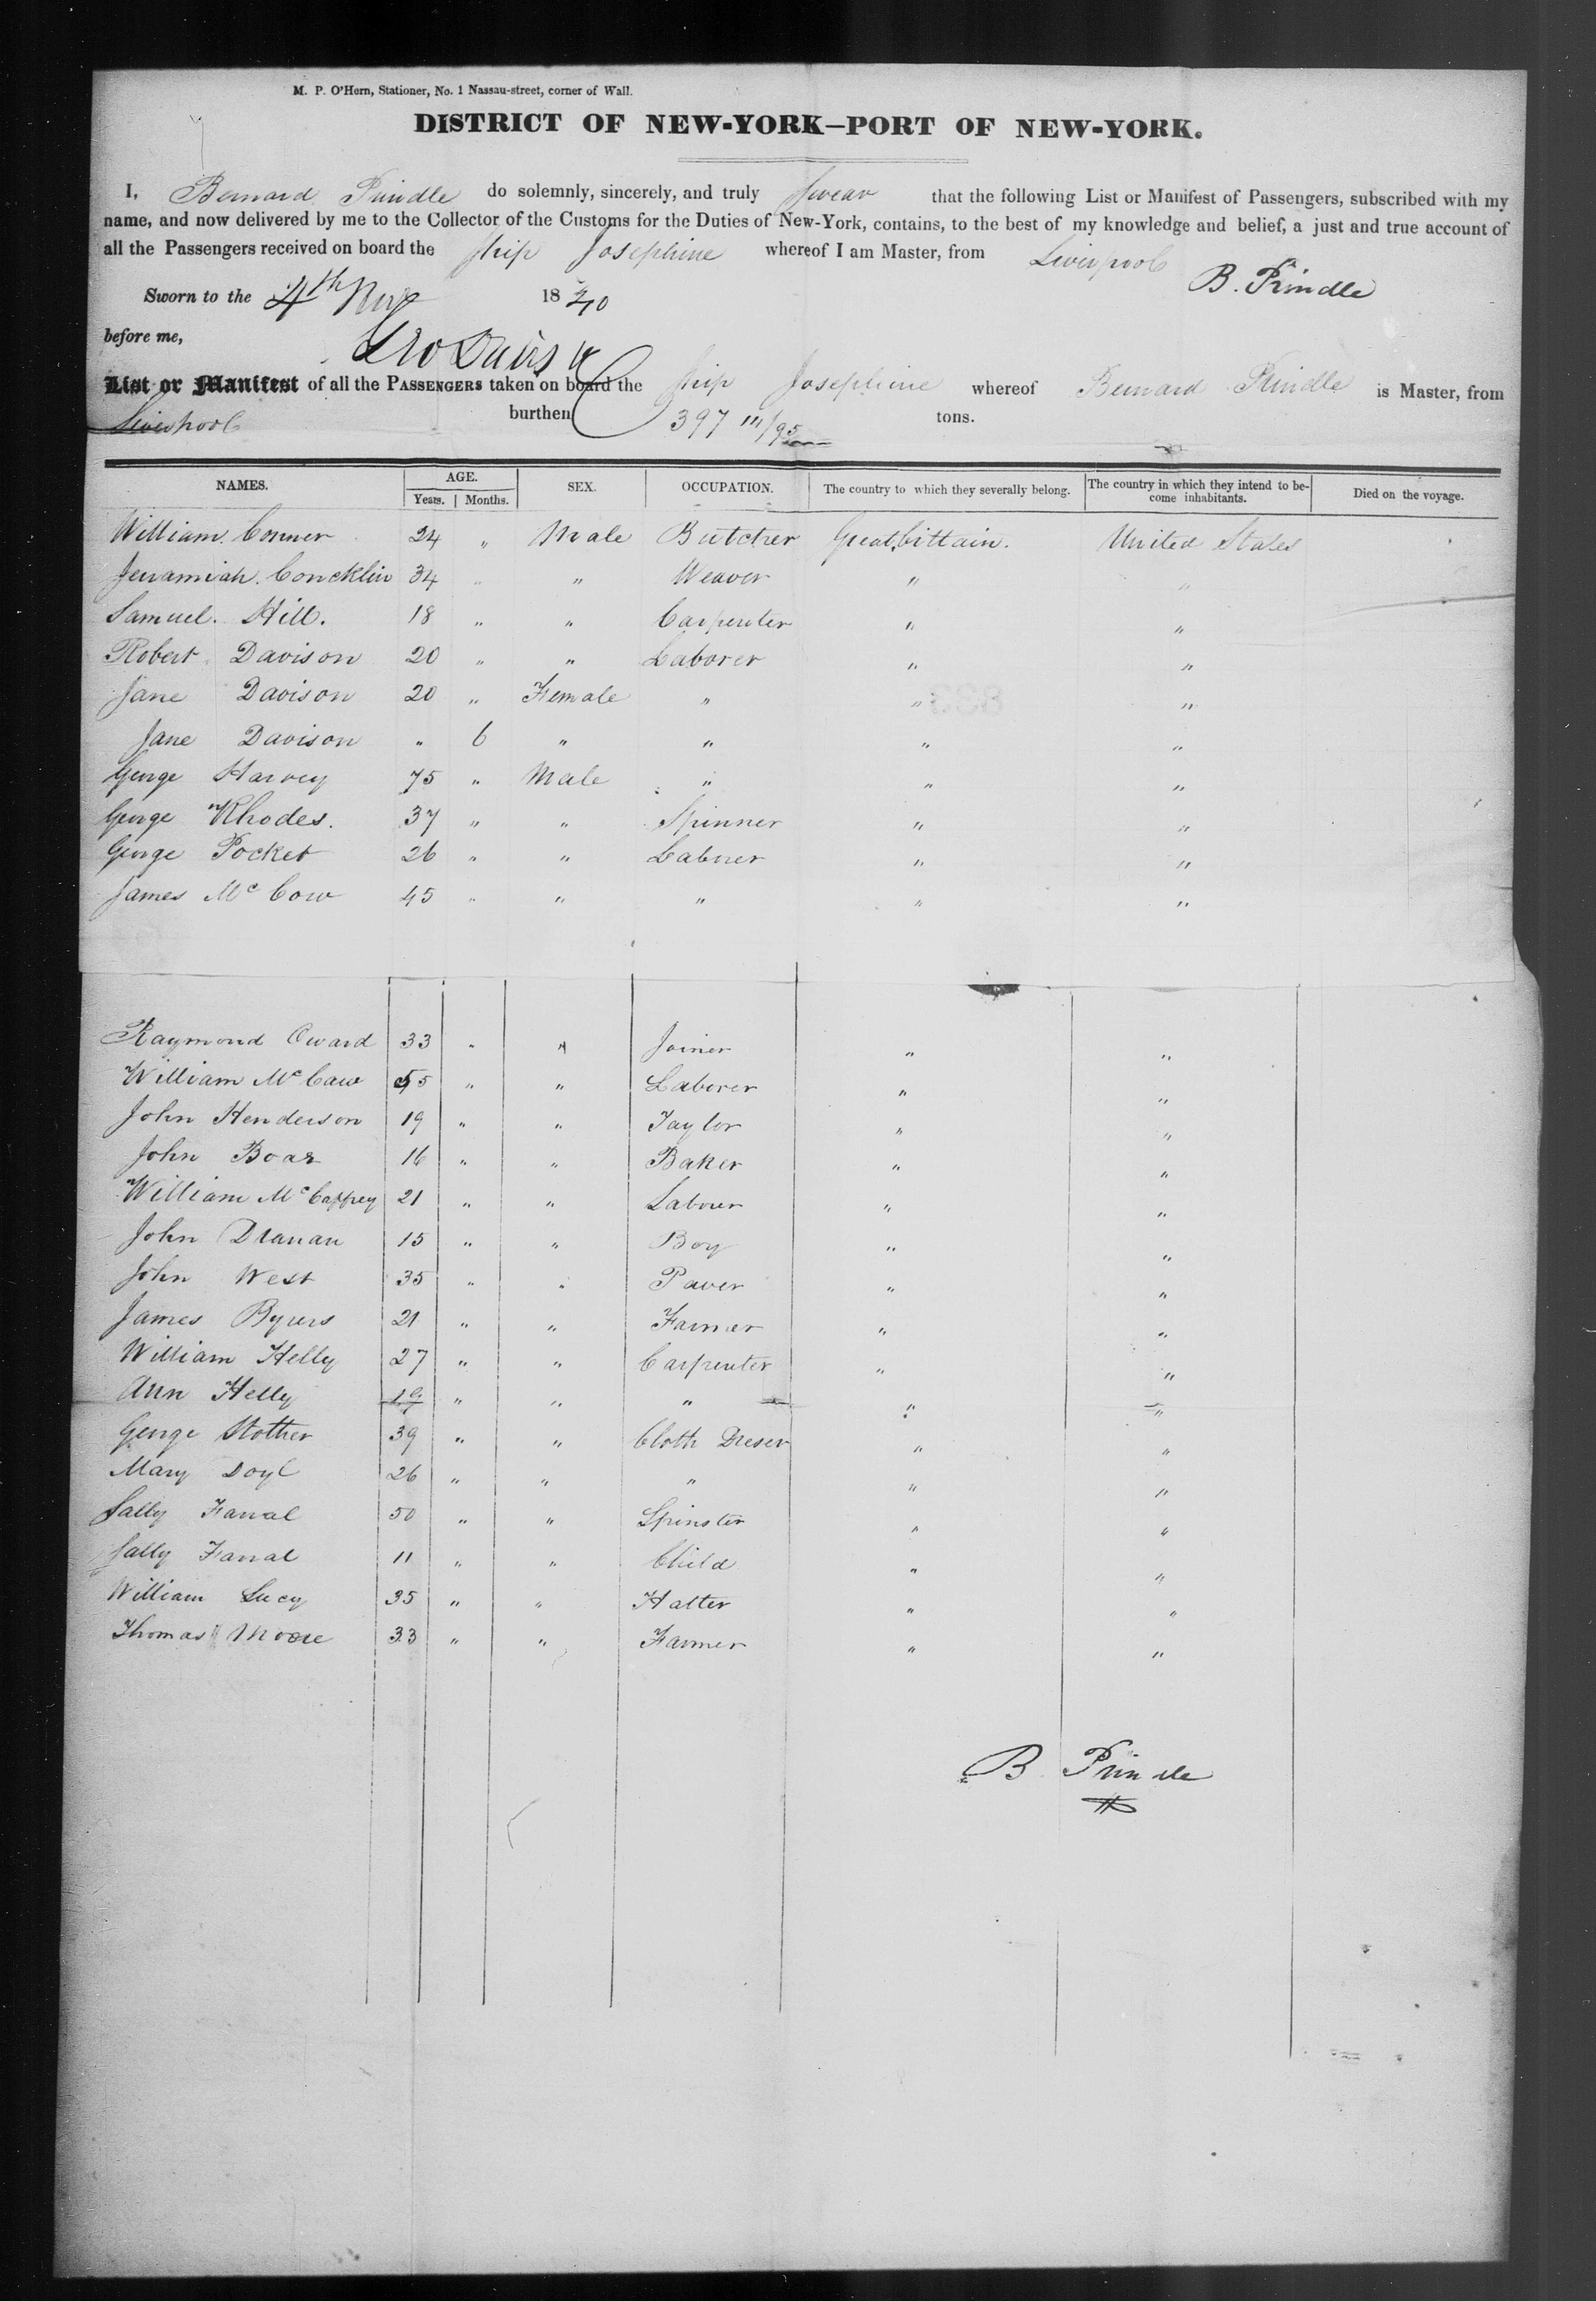 M. P. O'Hern, Stationer, No. 1 Nassau-street, corner of Wall.
DISTRICT OF NEW-YORK—PORT OF NEW-YORK.
I, Bernard Prindle do solemnly, sincerely, and truly swear that the following List or Manifest of Passengers, subscribed with my
name, and now delivered by me to the Collector of the Customs for the Duties of New-York, contains, to the best of my knowledge and belief, a just and true account of
all the Passengers received on board the ship Josephine whereof I am Master, from Liverpool
B. Prindle
Sworn to the 4th 1840
before me,
List or Manifest of all the PASSENGERS taken on board the ship Josephine whereof Bernard Prindle is Master, from
Liverpool burthen 397 11/95 tons.
NAMES. AGE. SEX. OCCUPATION. The country to which they severally belong. The country in which they intend to be- Died on the voyage.
Years. Months. come inhabitants.
William Conner 24 " Male Butcher Great Brittain. United States
Jeramiah Concklin 34 " " Weaver " "
Samuel Hill. 18 " " Carpenter " "
Robert Davison 20 " " Laborer " "
Jane Davison 20 " Female " " "
Jane Davison " 6 " " " "
George Harvey 75 " Male " " "
George Rhodes. 37 " " Spinner " "
George Pocket 26 " " Laborer " "
James Mc Cow 45 " " " " "
Raymond Oward 33 " " Joiner " "
William Mc Caw 55 " " Laborer " "
John Henderson 19 " " Taylor " "
John Boas 16 " " Baker " "
William Mc Caffrey 21 " " Laborer " "
John 15 " " Boy " "
John West 35 " " Paver " "
James Byers 21 " " Farmer " "
William Helly 27 " " Carpenter " "
Ann Helly 19 " " " " "
George Stother 39 " " Cloth Dreser " "
Mary Doyl 26 " " " " "
Sally Farral 50 " " Spinster " "
Sally Farral 11 " " Child " "
William Lucy 35 " " Hatter " "
Thomas Moore 33 " " Farmer " "
B Prindle